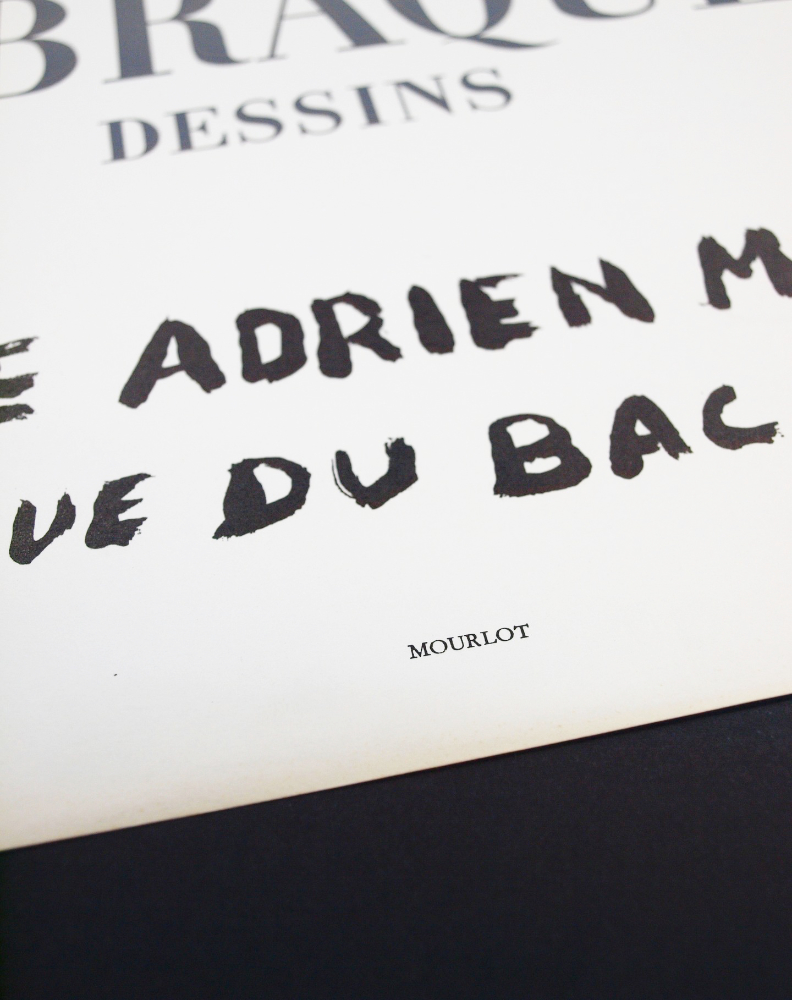 BRAQUE
DESSINS
E ADRIEN M
UE DU BAC
MOURLOT